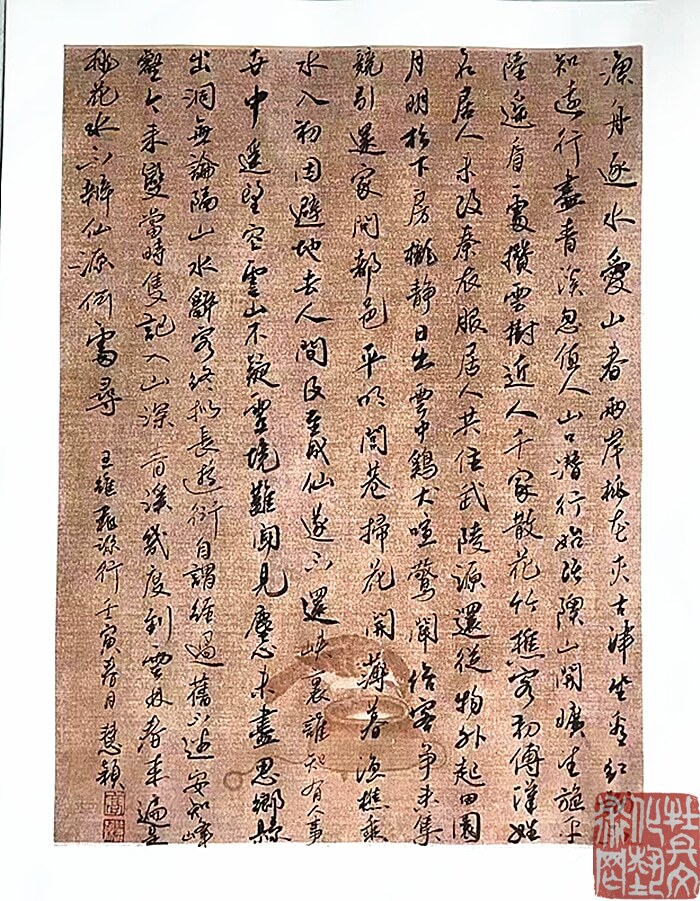 漁舟逐水愛山春兩岸桃花夾古津坐看紅
知遠行盡青溪忽值人山口潛行始隈隩山開曠望旋平
陸遙看一處攢雲樹近人千家散花竹樵客初傳漢姓
名居人未改秦衣服居人共住武陵源還從物外起田園
月明松下房櫳靜日出雲中鷄犬喧驚聞俗客爭來集
競引還家問都邑平明閭巷掃花開薄暮漁樵乘
水入初因避地去人間及至成仙遂不還峽裏誰知有人事
世中遙望空雲山不疑靈境難聞見塵心未盡思鄉縣
出洞無論隔山水辭家終擬長遊衍自謂經過舊不迷安知峰
壑今來變當時隻記入山深青溪幾度到雲林春來遍是
桃花水不辨仙源何處尋 王維桃源行壬寅春月慧穎